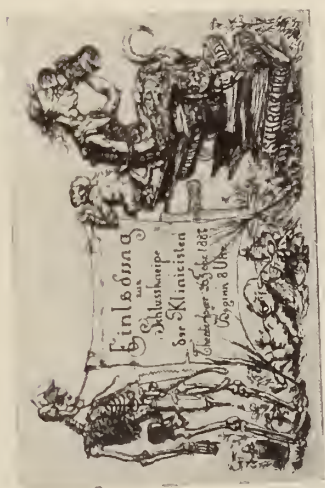 Einladung
zur
Schlusskneipe
der Klinicisten
Theaterfoyer 26 Febr 1886
Beginn 8 Uhr